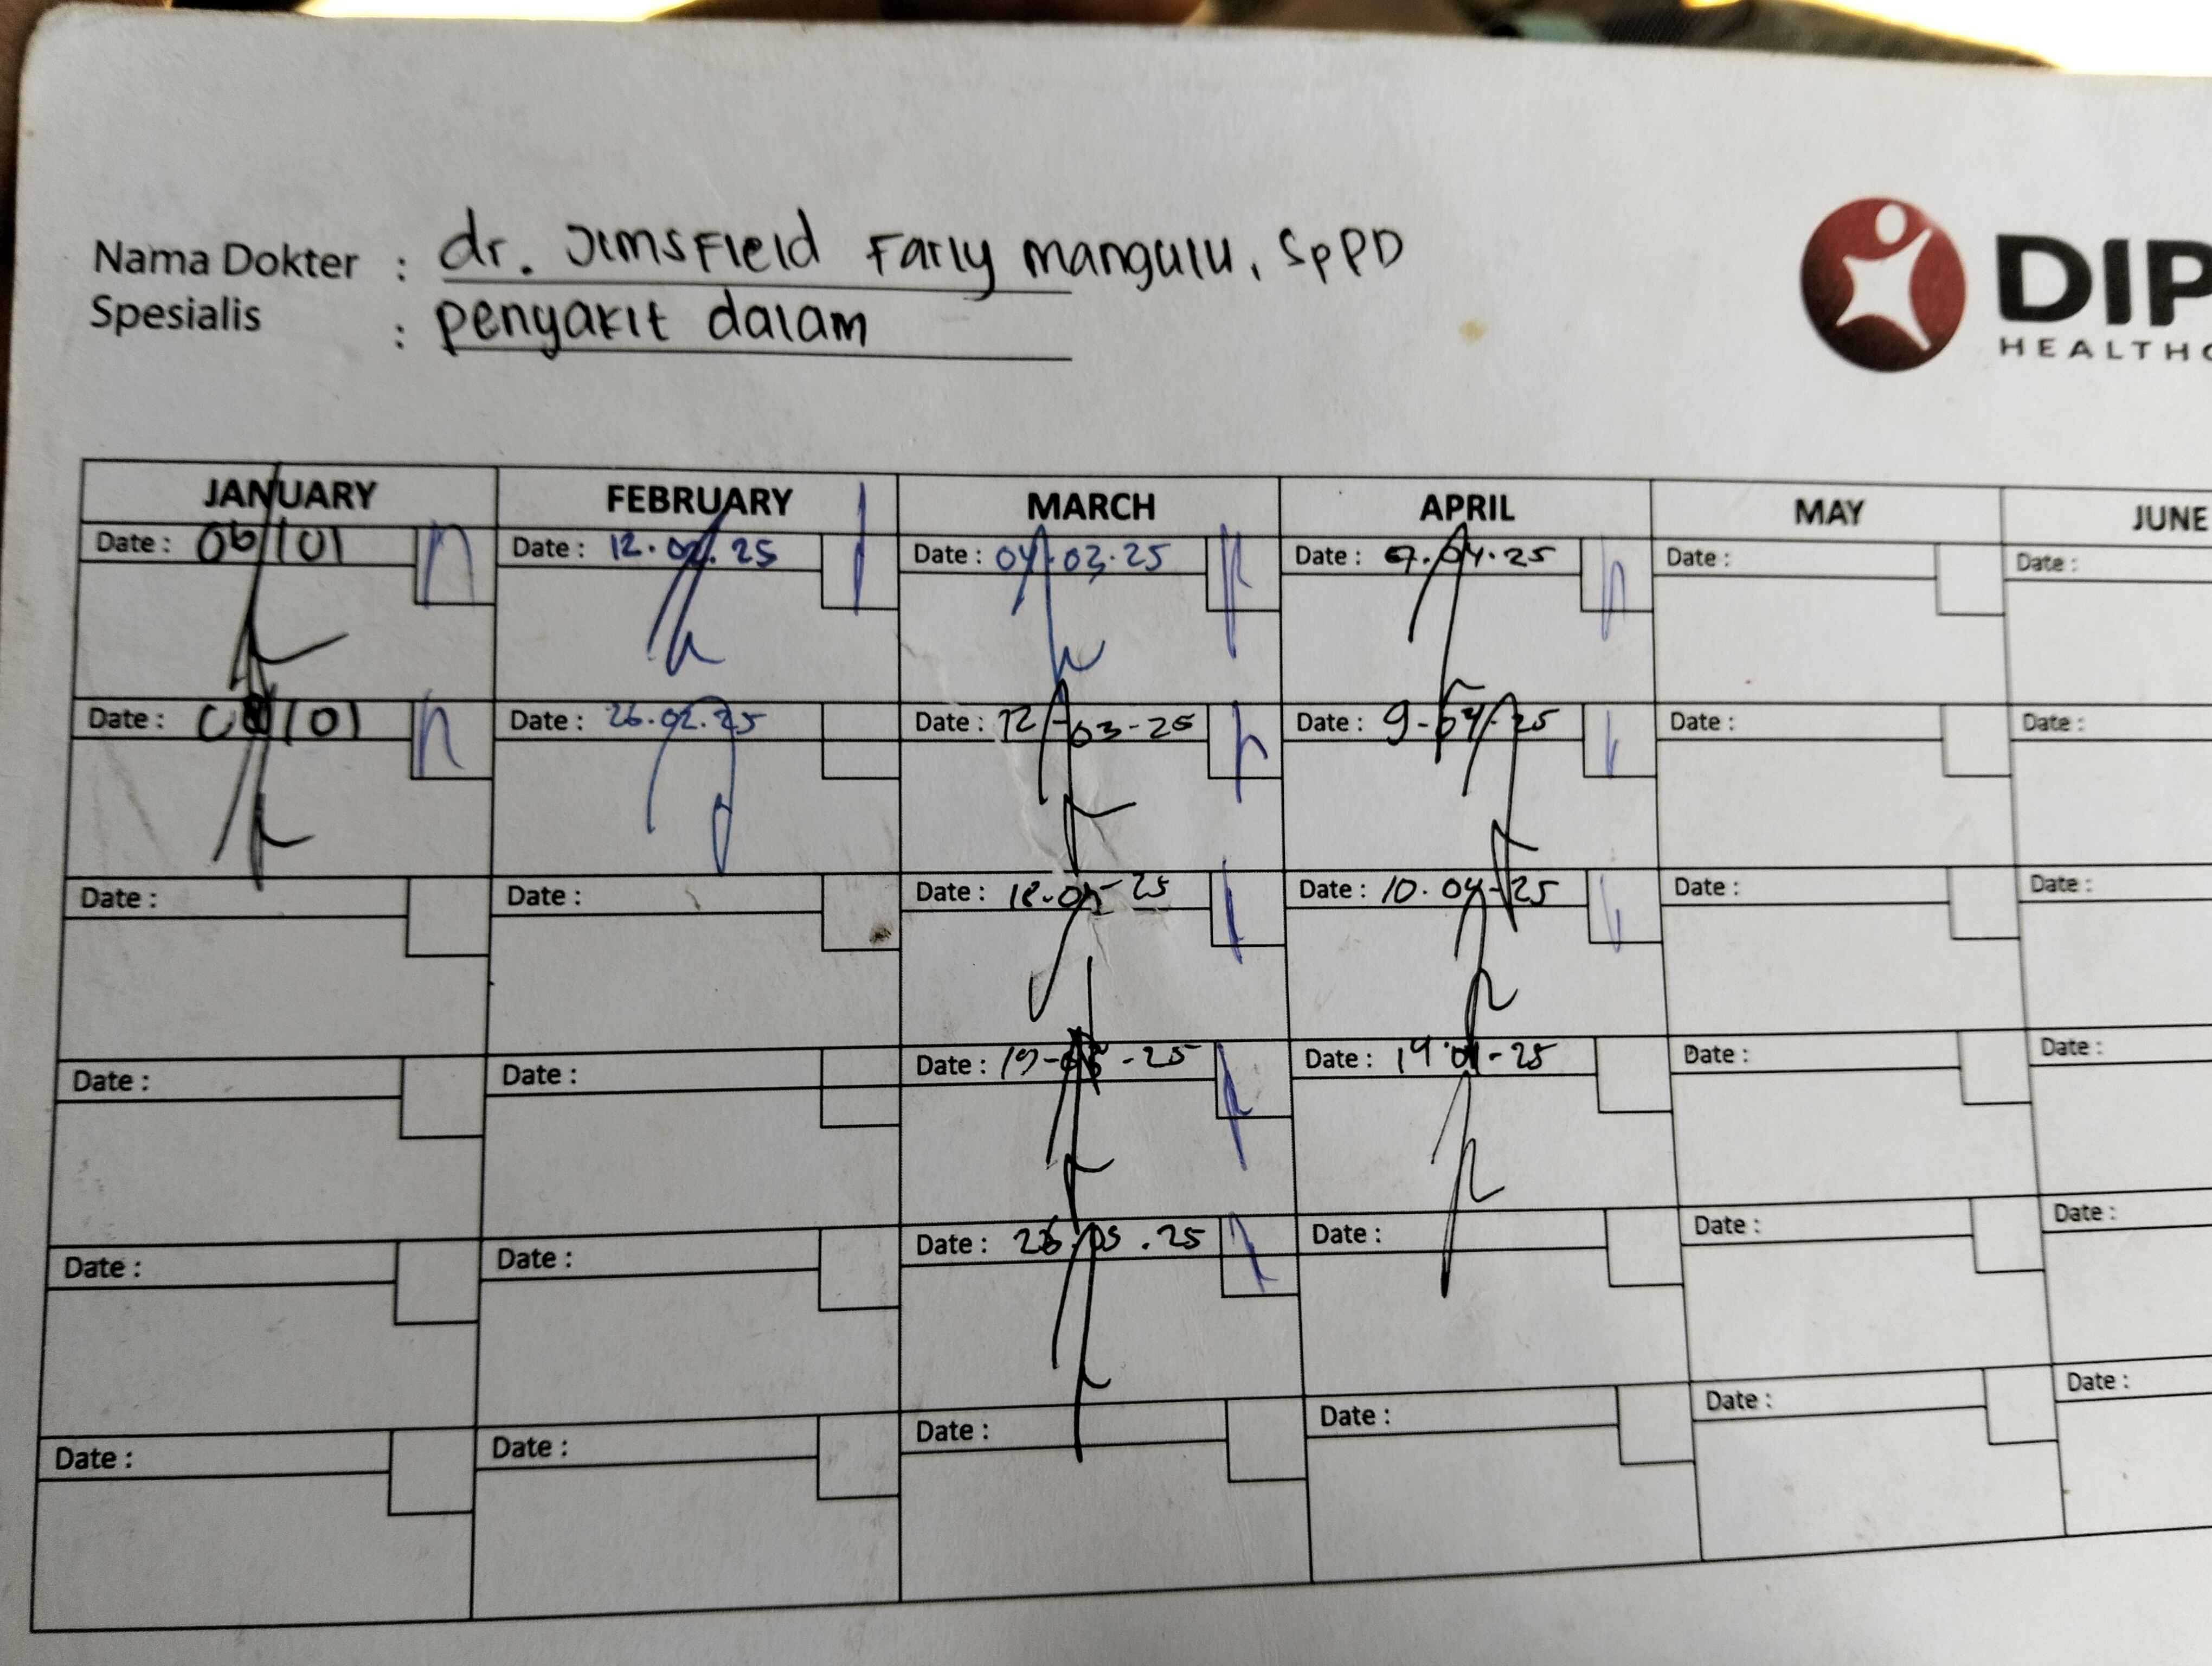 Nama Dokter : dr. Jimsfield Farly mangulu, SpPD
Spesialis : penyakit dalam
DIP
HEALTHC
JANUARY FEBRUARY MARCH APRIL MAY JUNE
Date : 06/01 Date : 12.02.25 Date : 04.03.25 Date : 07.04.25 Date : Date :
Date : /01 Date : 26.02.25 Date : 12-03-25 Date : 9-04-25 Date : Date :
Date : Date : Date : 18.03-25 Date : 10.04-25 Date : Date :
Date : Date : Date : 19-03-25 Date : 14.04-25 Date : Date :
Date : Date : Date : 26.03.25 Date : Date : Date :
Date : Date : Date : Date : Date : Date :